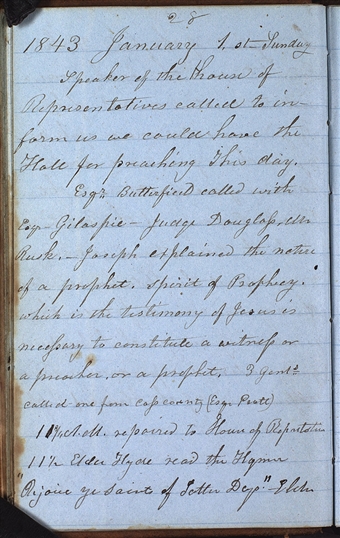 28
1843 January 1. st— Sunday
Speaker of the house of
Representatives called to in-
form us we could have the
Hall for preaching this day.
Esqr Butterfield called with
Esqr Gilaspie— Judge Douglass, Mr
Rusk.— Joseph explained the nature
of a prophet. Spirit of Prophecy.
which is the testimony of Jesus is
necessary to constitute a witness or
a preacher. or a prophet. 3 Gentn
called one from cass county (Esqr Pratt)
10½ A.M. repaired to House of Reprstatives
11½ Elder Hyde read the Hymn
"Rejoice ye Saints of Latter Day" Elder